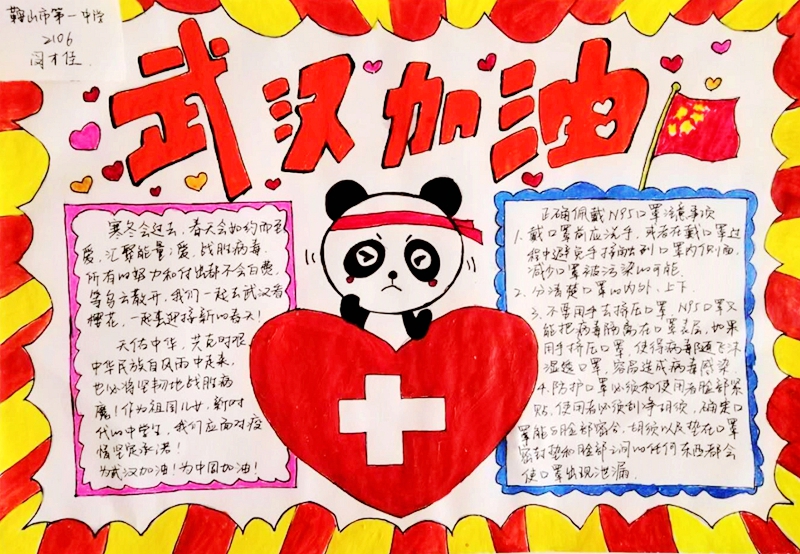 鞍山市第一中学
2106
闵才佳
武汉加油
寒冬会过去，春天会如约而至
爱，汇聚能量：爱，战胜病毒，
所有的努力和付出都不会白费，
等乌云散开，我们一起去武汉看
樱花，一起喜迎接新的春天！
天佑中华，共克时艰，
中华民族自风雨中走来，
也必将坚韧地战胜病
魔！作为祖国儿女，新时
代的中学生，我们应面对疫
情坚定承诺！
为武汉加油！为中国加油！
正确佩戴N95口罩注意事项
1.戴口罩前应洗手，或者在戴口罩过
程中避免手接触到口罩内侧面，
减少口罩被污染的可能。
2.分清楚口罩的内外、上下。
3.不要用手去挤压口罩，N95口罩只
能把病毒隔离在口罩表层，如果
用手挤压口罩，使得病毒随飞沫
湿透口罩，容易造成病毒感染
4.防护口罩必须和使用者脸部紧
贴，使用者必须刮净胡须，确定口
罩能与脸部密合，胡须以及垫在口罩
密封垫和脸部之间的任何东西都会
使口罩出现泄漏.